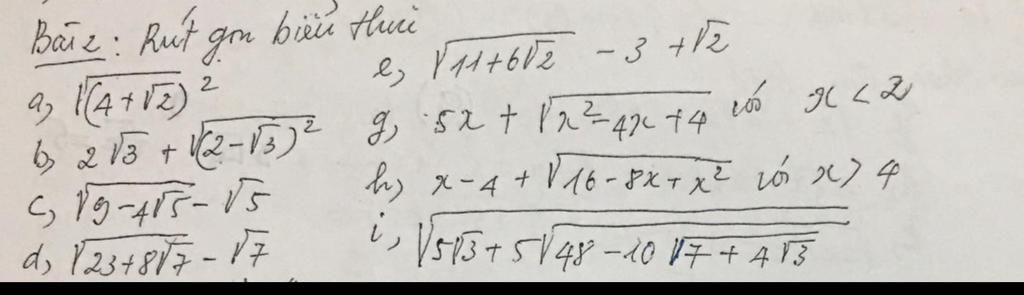 Bài 2: Rút gọn biểu thức
a, √(4+√2)²
b, 2√3 + √(2-√3)²
c, √(9-4√5) - √5
d, √(23+8√7) - √7
e, √(11+6√2) - 3 + √2
g, 5x + √(x²-4x+4) với x < 2
h, x-4 + √(16-8x+x²) với x > 4
i, √(5√3+5√(48-10√(7+4√3)))